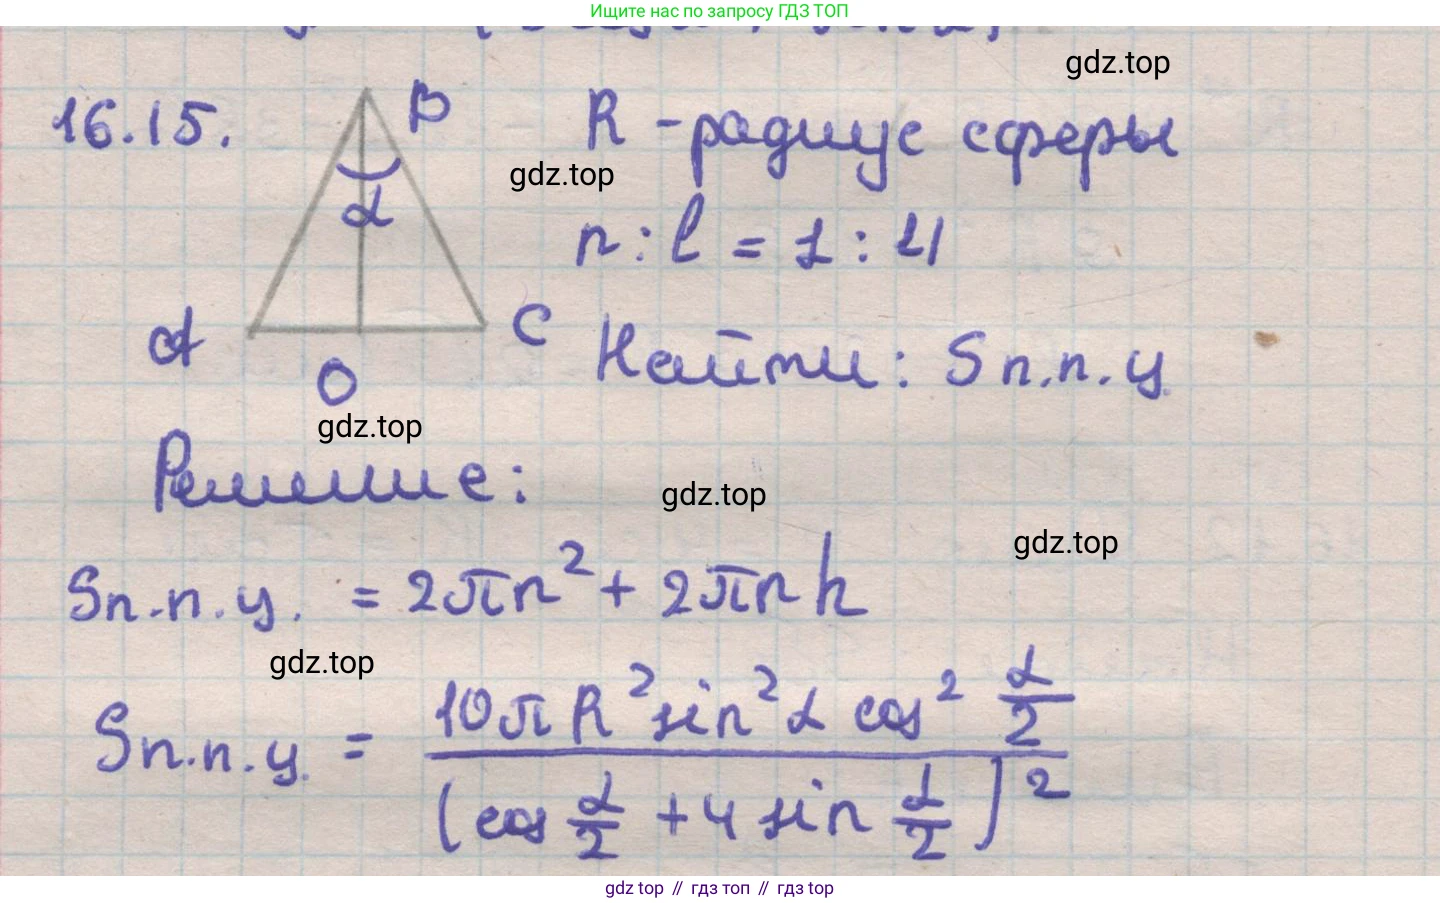 Ищите нас по запросу ГДЗ ТОП
gdz.top
16.15.
B
R - радиус сферы
gdz.top
α
r : l = 1 : 4
A
O
C
Найти: Sп.п.ц.
gdz.top
Решение:
gdz.top
gdz.top
Sп.п.ц. = 2πr² + 2πrh
gdz.top
Sп.п.ц. = 10πR² sin²α cos² α/2 / (cos α/2 + 4 sin α/2)²
gdz top // гдз топ // gdz top